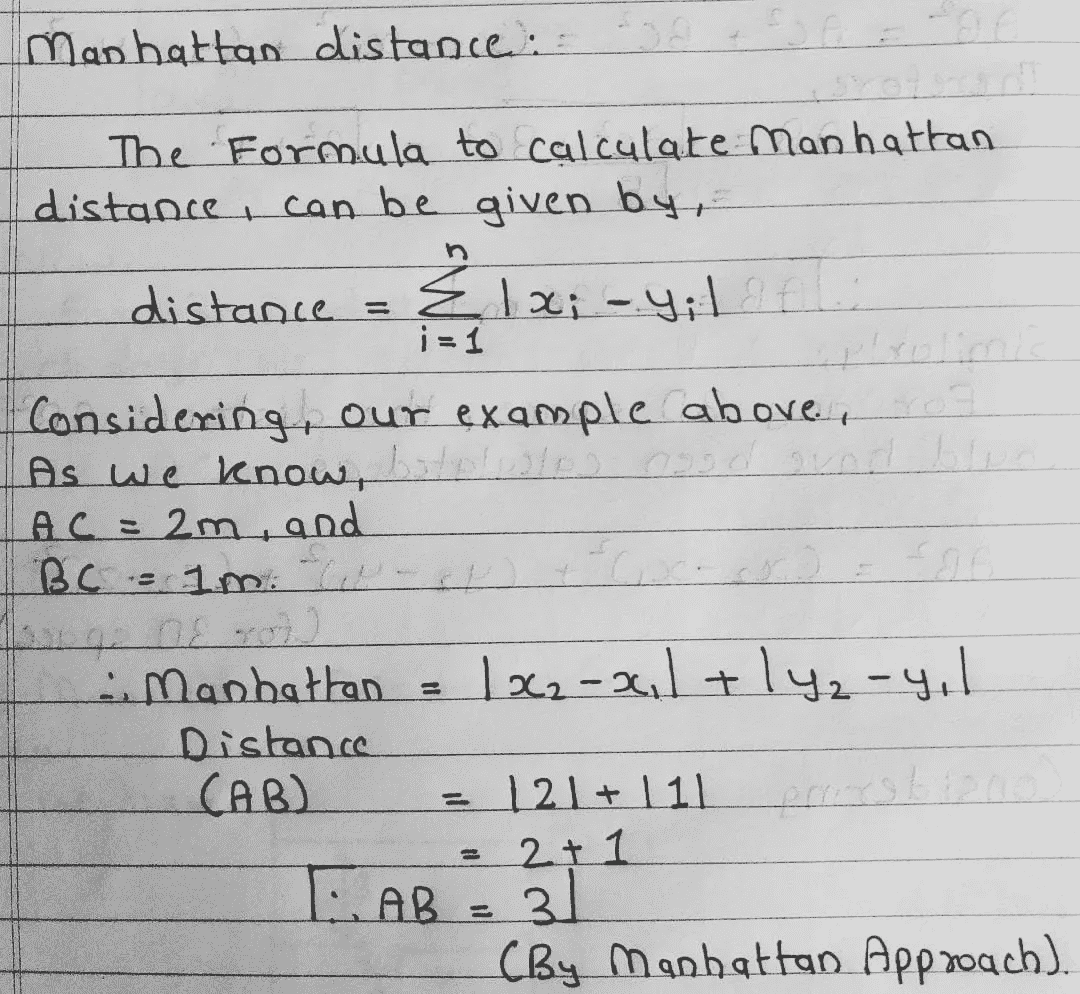 Manhattan distance:
The Formula to calculate Manhattan
distance, can be given by,
distance = n∑i=1 |xi - yi|
Considering, our example above,
As we know,
AC = 2m, and
BC = 1m.
∴ Manhattan = |x₂ - x₁| + |y₂ - y₁|
Distance
(AB) = |2| + |1|
= 2 + 1
∴ AB = 3
(By Manhattan Approach).